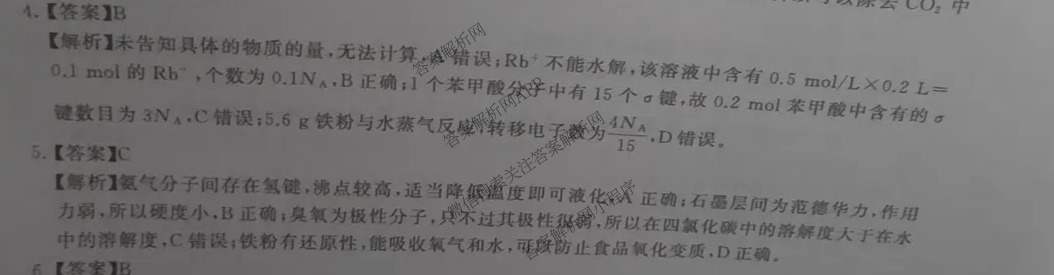 可以除去CO₂中
4.【答案】B
【解析】未告知具体的物质的量,无法计算,A错误;Rb⁺不能水解,该溶液中含有0.5 mol/L×0.2 L=
0.1 mol的Rb⁺,个数为0.1N_A,B正确;1个苯甲酸分子中有15个σ键,故0.2 mol苯甲酸中含有的σ
键数目为3N_A,C错误;5.6 g铁粉与水蒸气反应,转移电子数为4N_A/15,D错误。
5.【答案】C
【解析】氨气分子间存在氢键,沸点较高,适当降低温度即可液化,A正确;石墨层间为范德华力,作用
力弱,所以硬度小,B正确;臭氧为极性分子,只不过其极性很弱,所以在四氯化碳中的溶解度大于在水
中的溶解度,C错误;铁粉有还原性,能吸收氧气和水,可以防止食品氧化变质,D正确。
6.【答案】B
答案解析网
答案解析网APP
微信搜索关注答案解析网
答案解析网小程序